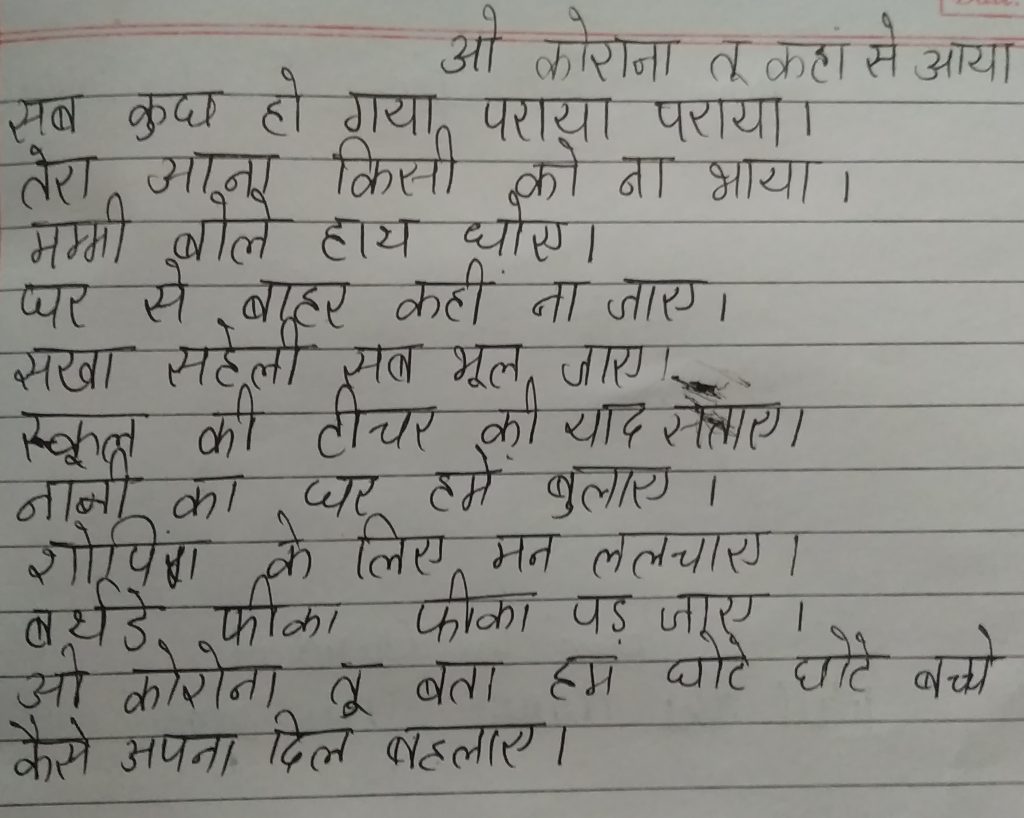 ओ कोरोना तू कहां से आया
सब कुछ हो गया पराया पराया।
तेरा आना किसी को ना भाया।
मम्मी बोले हाथ धोए।
घर से बाहर कहीं ना जाए।
सखा सहेली सब भूल जाए।
स्कूल की टीचर की याद सताए।
नानी का घर हमें बुलाए।
शोपिंग के लिए मन ललचाए।
बर्थडे फीका फीका पड़ जाए।
ओ कोरोना तू बता हम छोटे छोटे बच्चे
कैसे अपना दिल बहलाए।